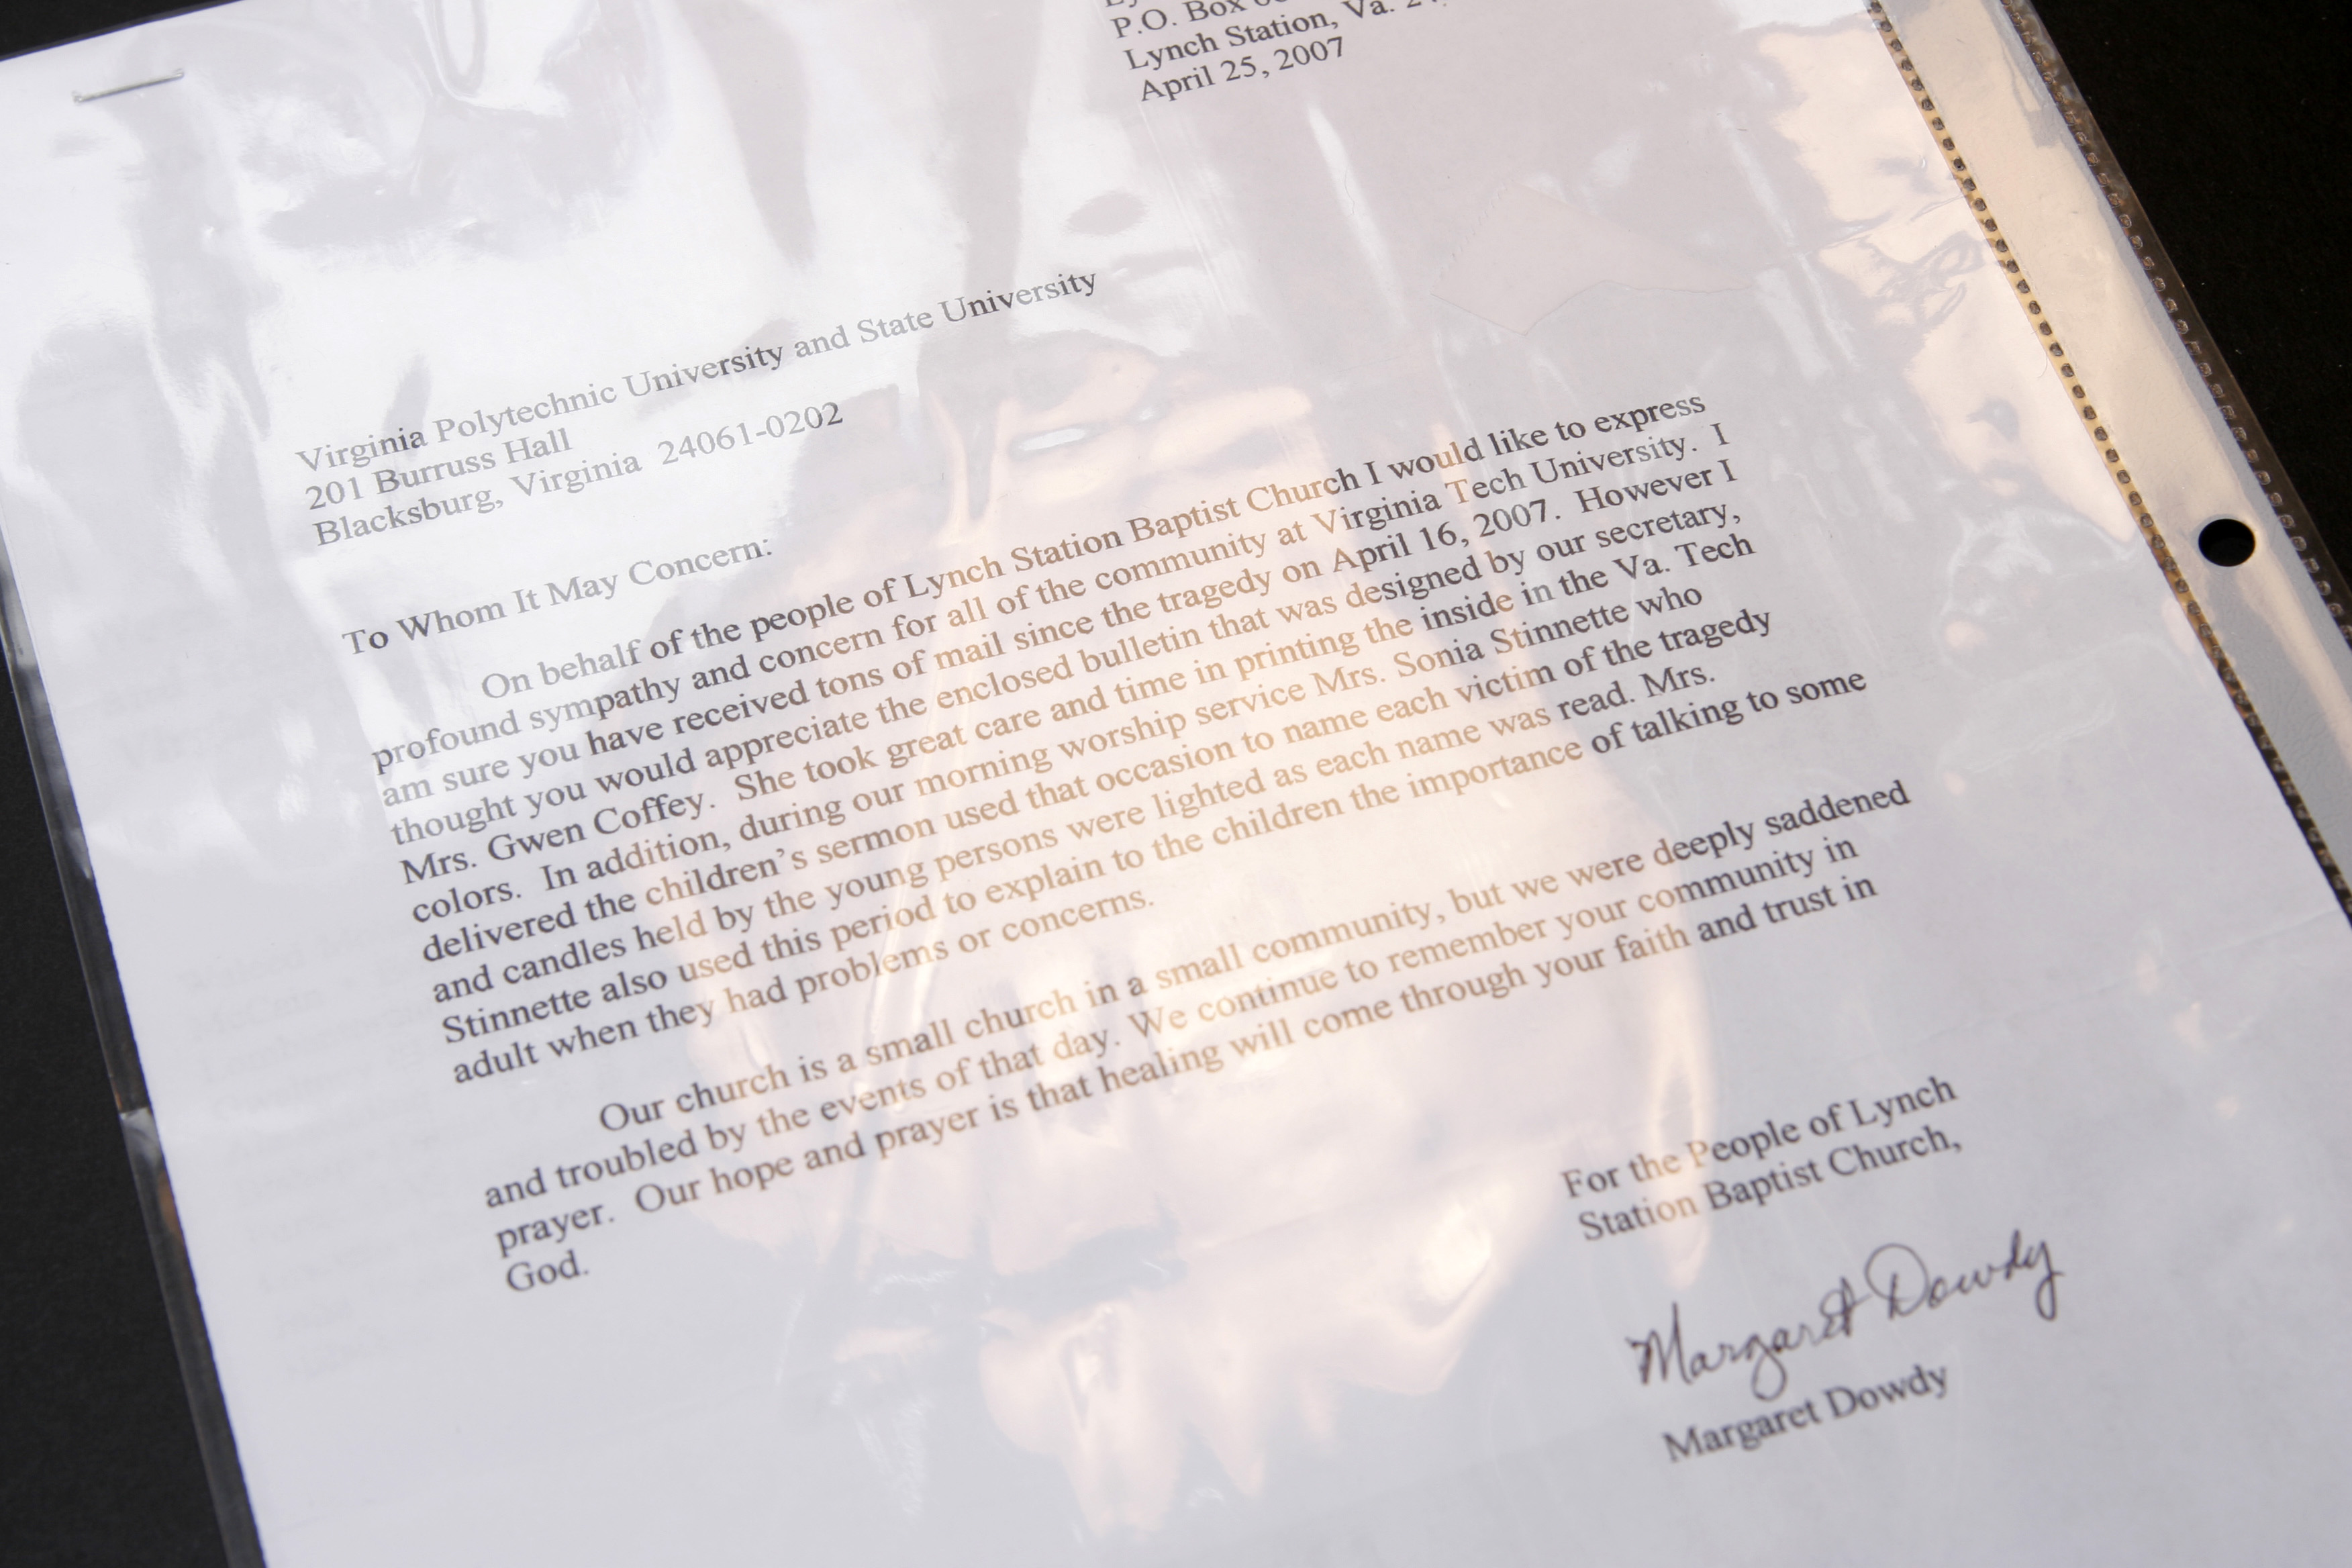 P.O. Box
Lynch Station, Va.
April 25, 2007
Virginia Polytechnic University and State University
201 Burruss Hall
Blacksburg, Virginia 24061-0202
To Whom It May Concern:
On behalf of the people of Lynch Station Baptist Church I would like to express
profound sympathy and concern for all of the community at Virginia Tech University. I
am sure you have received tons of mail since the tragedy on April 16, 2007. However I
thought you would appreciate the enclosed bulletin that was designed by our secretary,
Mrs. Gwen Coffey. She took great care and time in printing the inside in the Va. Tech
colors. In addition, during our morning worship service Mrs. Sonia Stinnette who
delivered the children's sermon used that occasion to name each victim of the tragedy
and candles held by the young persons were lighted as each name was read. Mrs.
Stinnette also used this period to explain to the children the importance of talking to some
adult when they had problems or concerns.
Our church is a small church in a small community, but we were deeply saddened
and troubled by the events of that day. We continue to remember your community in
prayer. Our hope and prayer is that healing will come through your faith and trust in
God.
For the People of Lynch
Station Baptist Church,
Margaret Dowdy
Margaret Dowdy